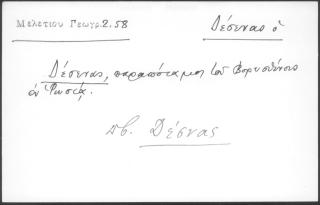 Μελετίου Γεωγρ.2.58
Δέσενας ὁ
Δέσενας, παραπόταμος τοῦ Βορυσθένους
ἐν Ῥωσίᾳ.
πβ. Δέσνας